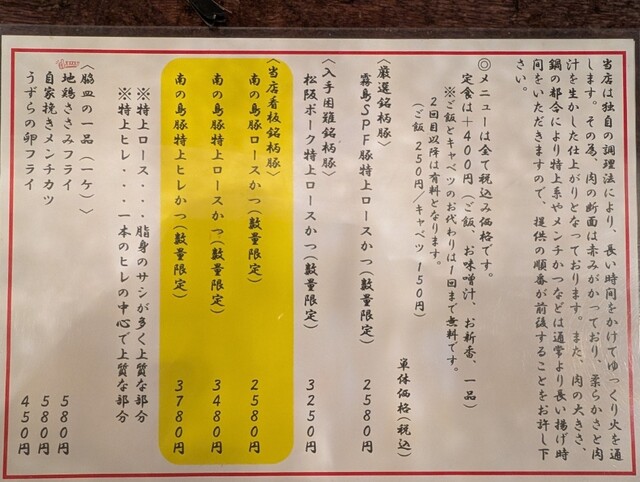 当店は独自の調理法により、長い時間をかけてゆっくり火を通
します。その為、肉の断面は赤みがかっており、柔らかさと肉
汁を生かした仕上がりとなっております。また、肉の大きさ、
鍋の都合により特上系やメンチかつなどは通常より長い揚げ時
間をいただきますので、提供の順番が前後することをお許し下
さい。
◎メニューは全て税込み価格です。
定食は+400円(ご飯、お味噌汁、お新香、一品)
※ご飯とキャベツのお代わりは1回まで無料です。
2回目以降は有料となります。
(ご飯 250円/キャベツ 150円)
単体価格(税込)
〈厳選銘柄豚〉
霧島SPF豚特上ロースかつ(数量限定) 2580円
〈入手困難銘柄豚〉
松阪ポーク特上ロースかつ(数量限定) 3250円
〈当店看板銘柄豚〉
南の島豚ロースかつ(数量限定) 2580円
南の島豚特上ロースかつ(数量限定) 3480円
南の島豚特上ヒレかつ(数量限定) 3780円
※特上ロース・・・脂身のサシが多く上質な部分
※特上ヒレ・・・一本のヒレの中心で上質な部分
〈脇皿の一品(一ケ)〉
地鶏ささみフライ 580円
自家挽きメンチカツ 580円
うずらの卵フライ 450円